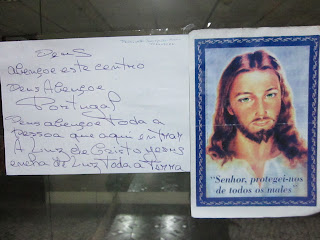 Deus
abençoe este centro
Deus Abençoe
Portugal
Deus abençoe toda a
pessoa que aqui entrar
A Luz de Cristo Jesus
encha de Luz toda a Terra
"Senhor, protegei-nos
de todos os males"